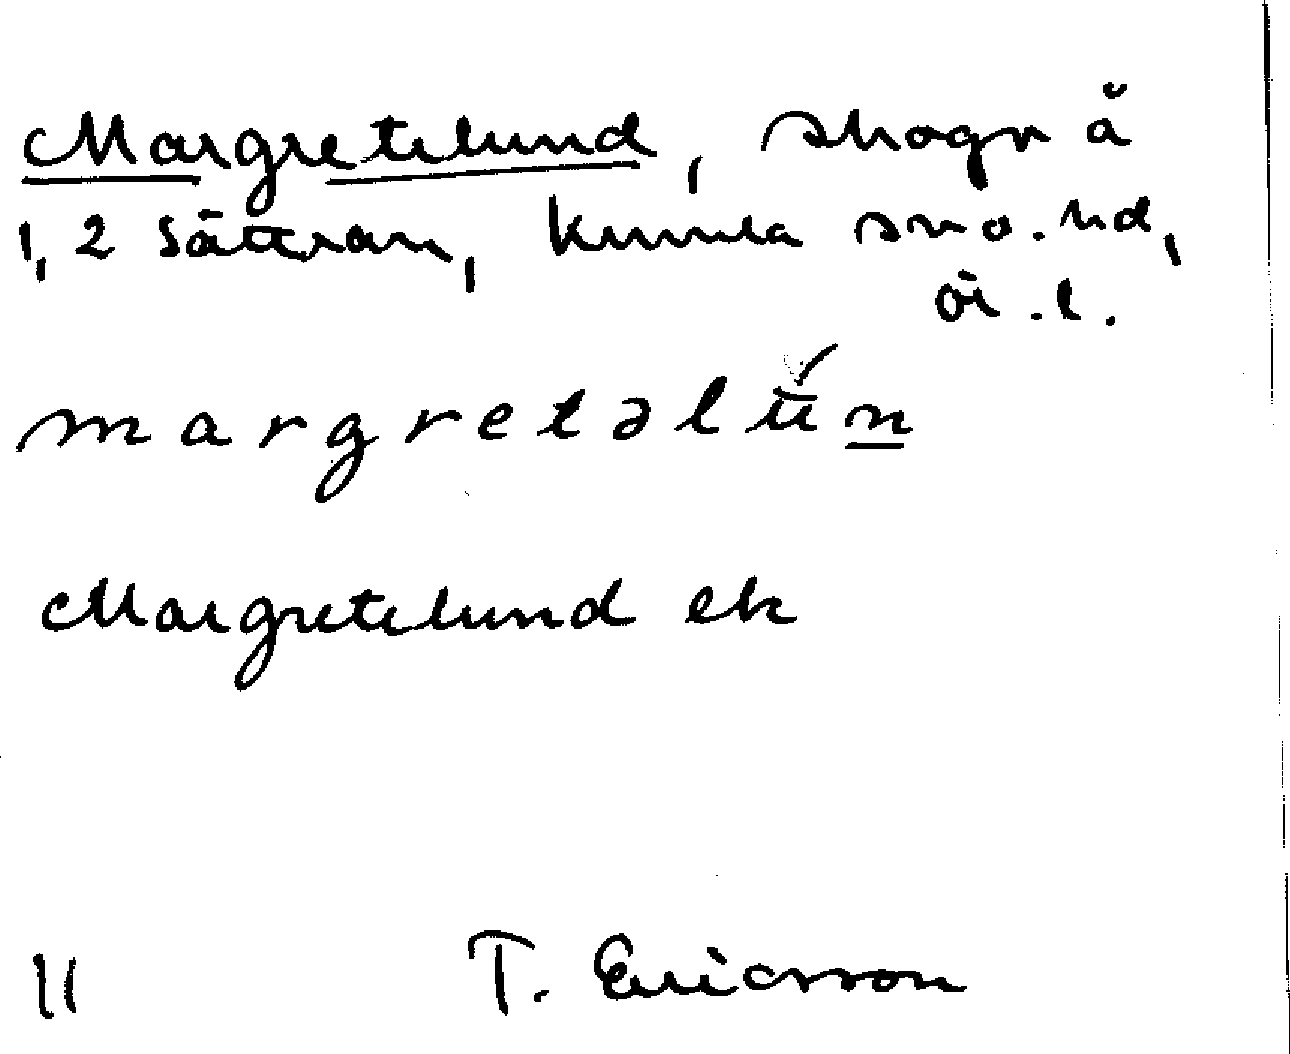 Margretelund, skogv å
1, 2 Sättran, Kumla sn o. hd,
Ör. l.
margretəlu̇́n
Margretelund ek
11 T. Ericsson